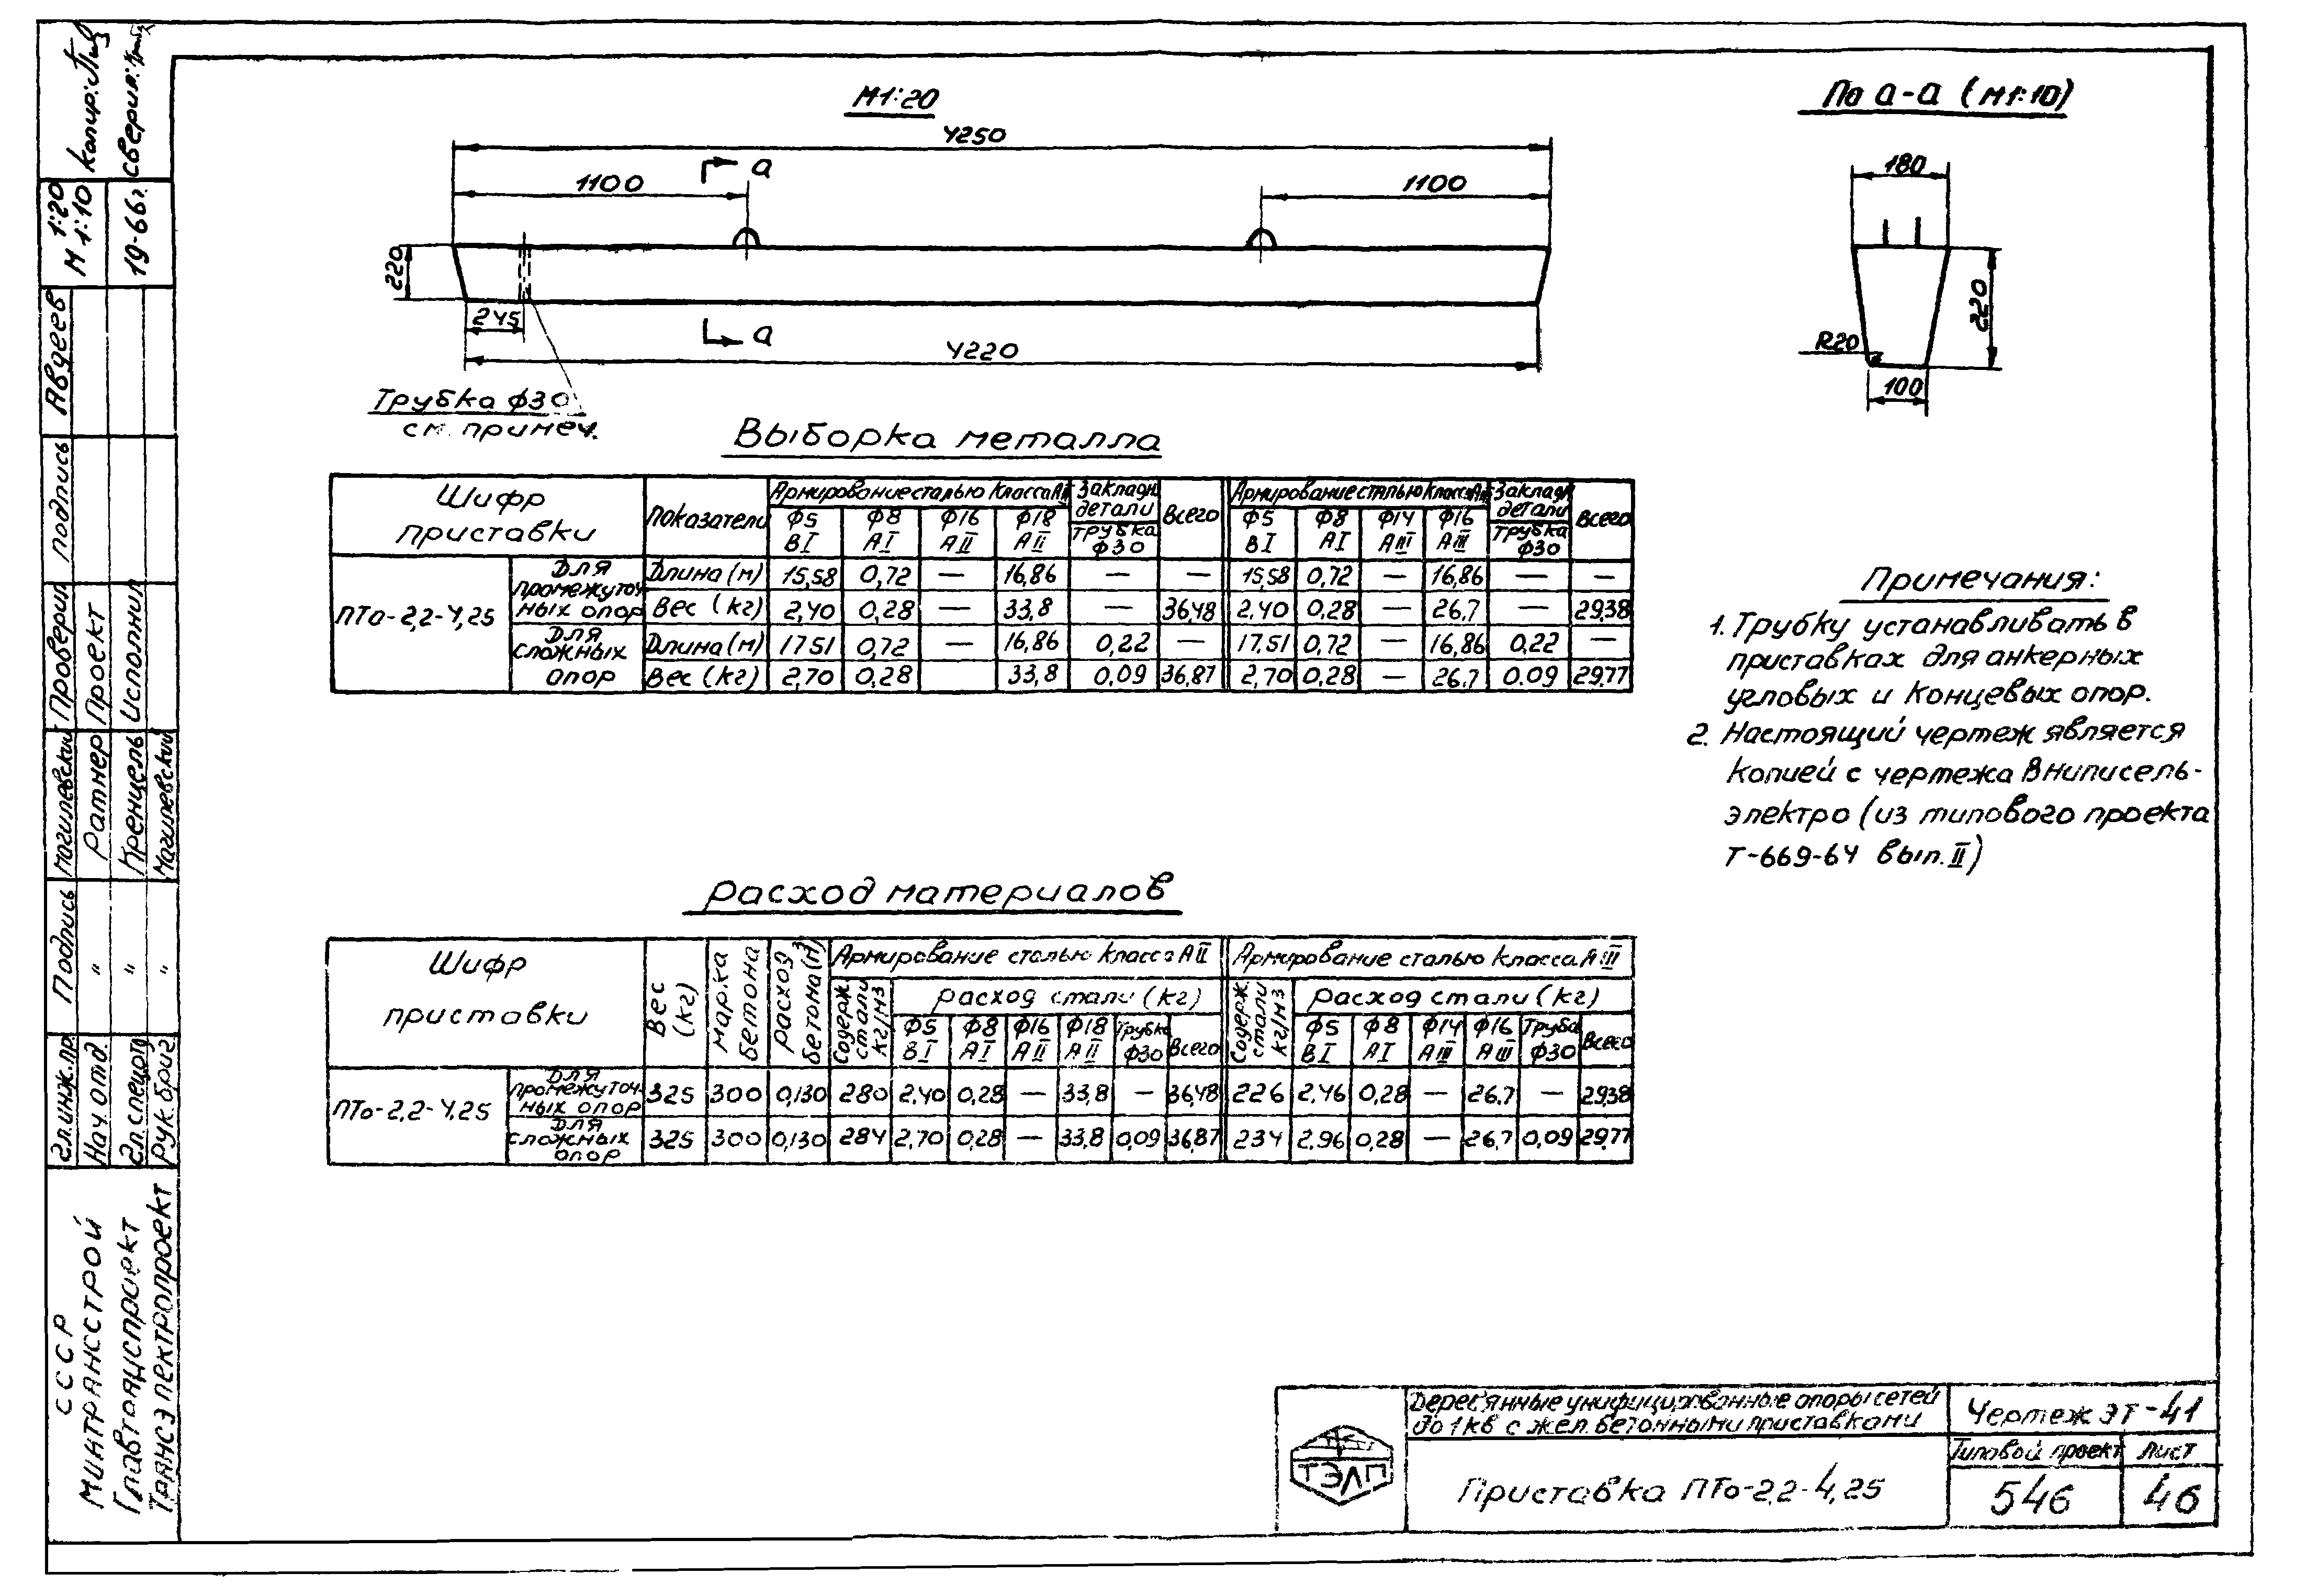 М1:20
4250
1100
а
1100
220
245
а
4220
Трубка ф30
см. примеч.
По а-а (М1:10)
180
220
R20
100
Выборка металла
Шифр приставки | Показатели | Армирование сталью класса АII | Закладн. детали | Всего | Армирование сталью класса АIII | Закладн. детали | Всего
Ф5 ВI | Ф8 АI | Ф16 АII | Ф18 АII | Трубка Ф30 | Ф5 ВI | Ф8 АI | Ф14 АIII | Ф16 АIII | Трубка Ф30
ПТо-2,2-4,25 | Для промежуточных опор | Длина (м) | 15,58 | 0,72 | — | 16,86 | — | — | 15,58 | 0,72 | — | 16,86 | — | —
Вес (кг) | 2,40 | 0,28 | — | 33,8 | — | 36,48 | 2.40 | 0,28 | — | 26.7 | — | 29.38
Для сложных опор | Длина (м) | 17.51 | 0,72 | — | 16,86 | 0,22 | — | 17.51 | 0,72 | — | 16,86 | 0.22 | —
Вес (кг) | 2,70 | 0,28 | 33,8 | 0.09 | 36,87 | 2,70 | 0.28 | — | 26.7 | 0.09 | 29.77
Примечания:
1. Трубку устанавливать в
приставках для анкерных
угловых и концевых опор.
2. Настоящий чертеж является
копией с чертежа ВНИПИсель-
электро (из типового проекта
Т-669-64 вып. II)
Расход материалов
Шифр приставки | Вес (кг) | марка бетона | расход бетона (м3) | Армирование сталью класса АII | Армирование сталью класса АIII
Содерж. стали кг/м3 | расход стали (кг) | Содерж. стали кг/м3 | расход стали (кг)
Ф5 ВI | Ф8 АI | Ф16 АII | Ф18 АII | Трубка Ф30 | Всего | Ф5 ВI | Ф8 АI | Ф14 АIII | Ф16 АIII | Труба Ф30 | Всего
ПТо-2,2-4,25 | Для промежуточных опор | 325 | 300 | 0,130 | 280 | 2,40 | 0,28 | — | 33,8 | — | 36,48 | 226 | 2,46 | 0,28 | — | 26.7 | — | 29.38
Для сложных опор | 325 | 300 | 0,130 | 284 | 2,70 | 0,28 | — | 33,8 | 0,09 | 36,87 | 234 | 2.96 | 0,28 | — | 26,7 | 0,09 | 29.77
ТЭЛП
Деревянные унифицированные опоры сетей
до 1кв с жел. бетонными приставками
Приставка ПТо-2,2-4,25
Чертеж ЭТ-41
Типовой проект
Лист
546
46
СССР
Минтрансстрой
Главтранспроект
Трансэлектропроект
Гл.инж.пр. | Подпись | Магилевский | Проверил | подпись | Авдеев | М 1:20
М 1:10 | Копир:
Нач. отд. | " | Ратнер | Проект
Гл.спец.отд. | " | Кренцель | Исполнил | 19-66г. | Сверил:
Рук. бриг. | " | Магилевский